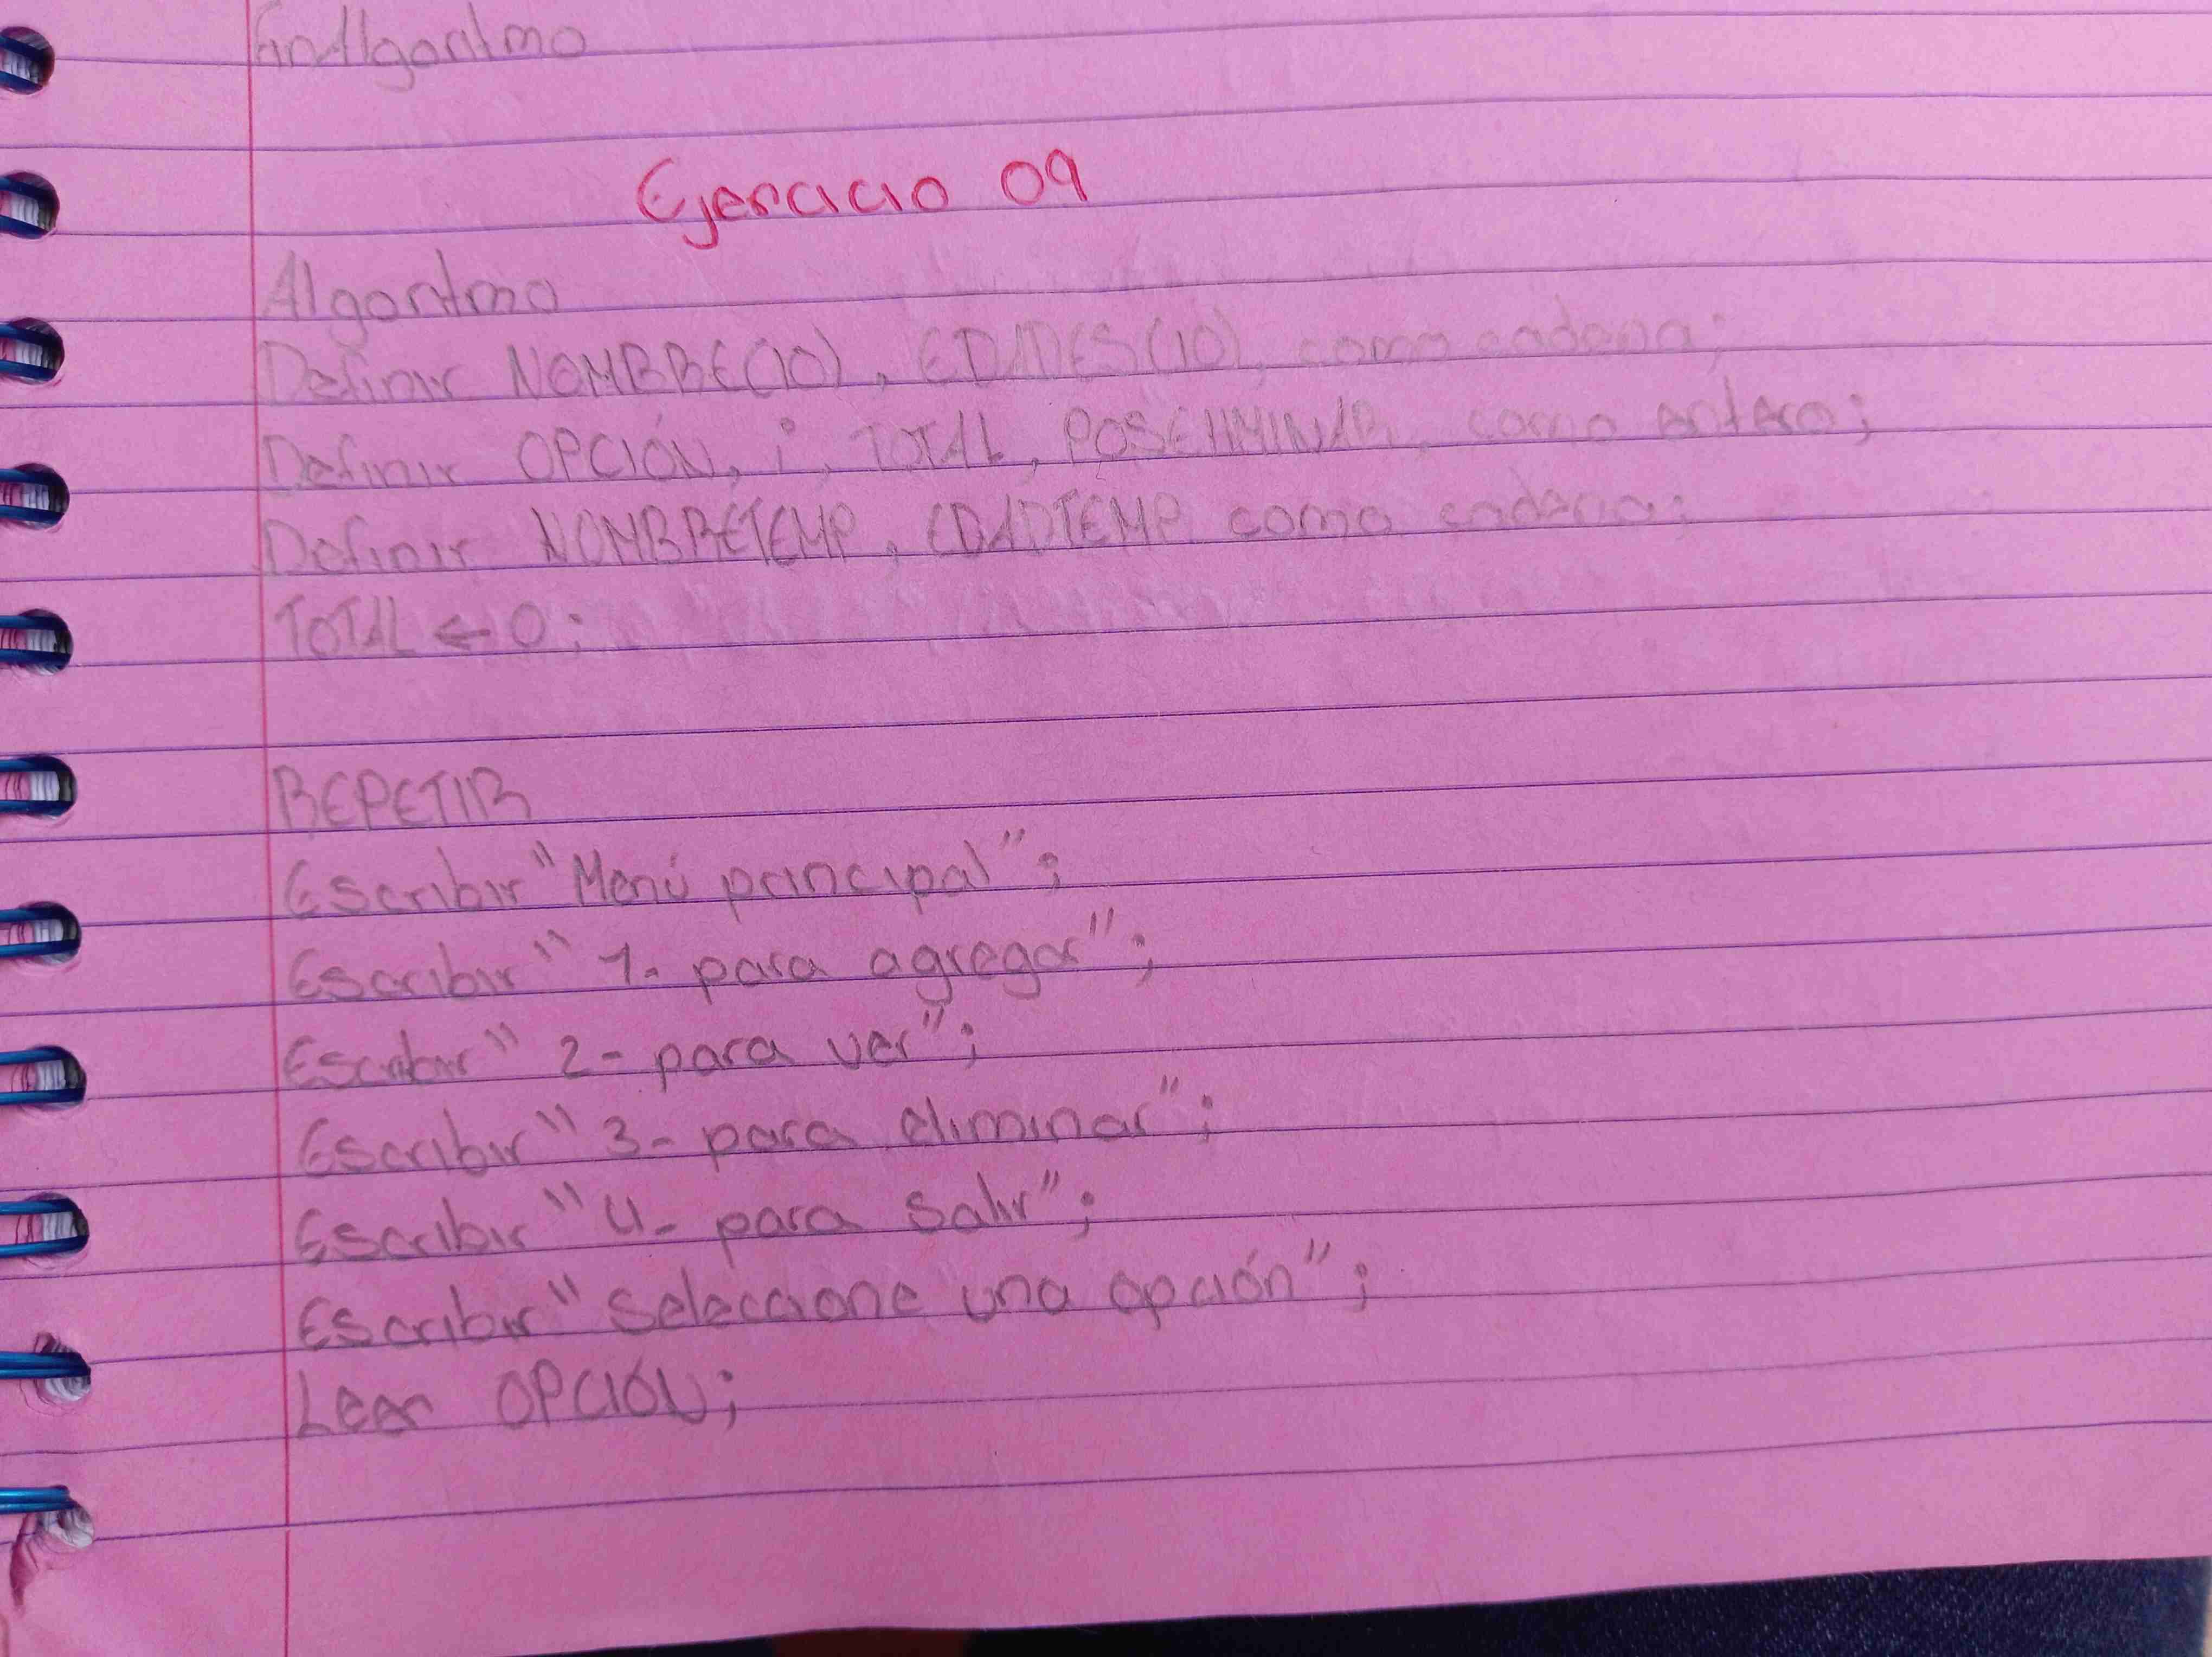 FinAlgoritmo
Ejercicio 09
Algoritmo
Definir NOMBRE(10), EDADES(10), como cadena;
Definir OPCIÓN, i, TOTAL, POSELIMINAR, como entero;
Definir NOMBRETEMP, EDADTEMP como cadena;
TOTAL ← 0;
REPETIR
Escribir "Menú principal";
Escribir "1- para agregar";
Escribir "2- para ver";
Escribir "3- para eliminar";
Escribir "4- para Salir";
Escribir "Seleccione una opción";
Leer OPCIÓN;